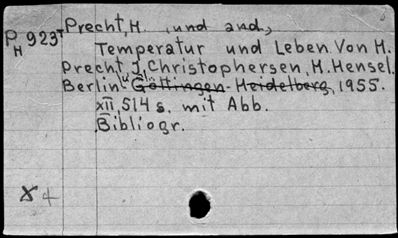 Precht, H. und and,
PH 923
Temperatur und Leben Von H.
Precht, J. Christophersen, H. Hensel.
Berlin Göttingen-Heidelberg, 1955.
XII, 514 s. mit Abb.
Bibliogr.